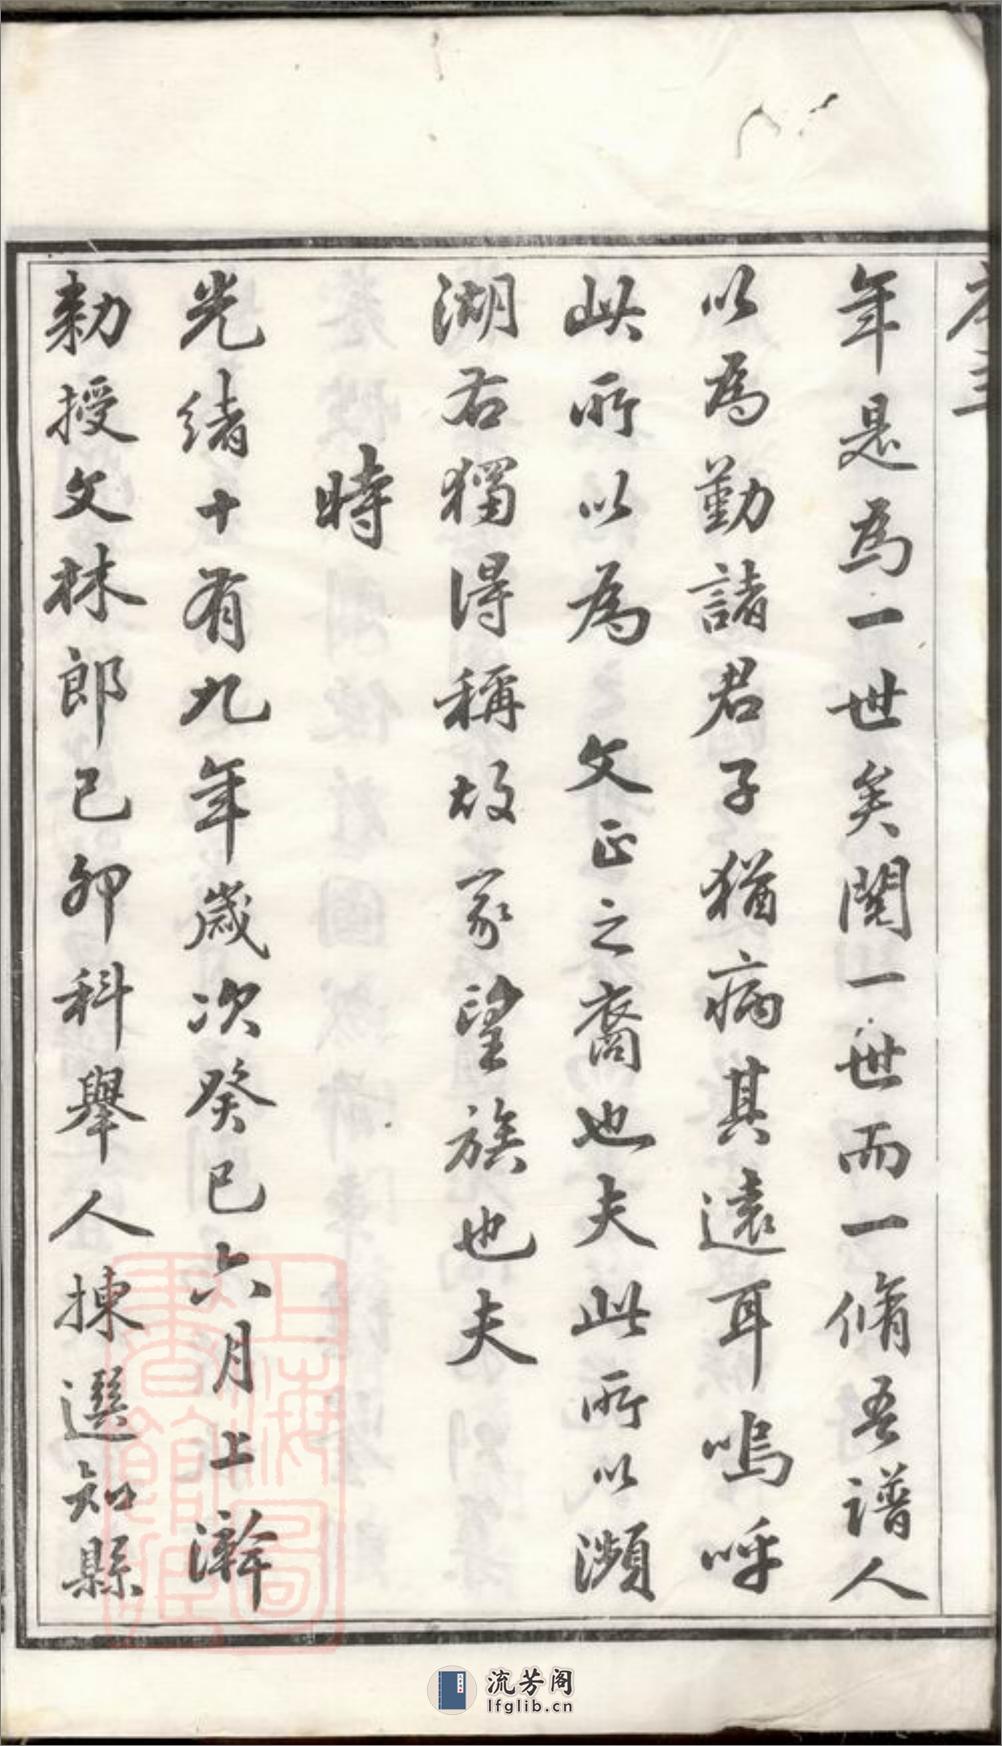 年是為一世矣閱一世而一脩吾譜人
以為勤諸君子猶病其遠耳嗚呼
此所以為 文正之裔也夫此所以瀕
湖右獨得稱故家望族也夫
時
光緒十有九年歲次癸巳六月上澣
勅授文林郎己卯科舉人揀選知縣
上海圖書館藏
流芳阁
lfglib.cn